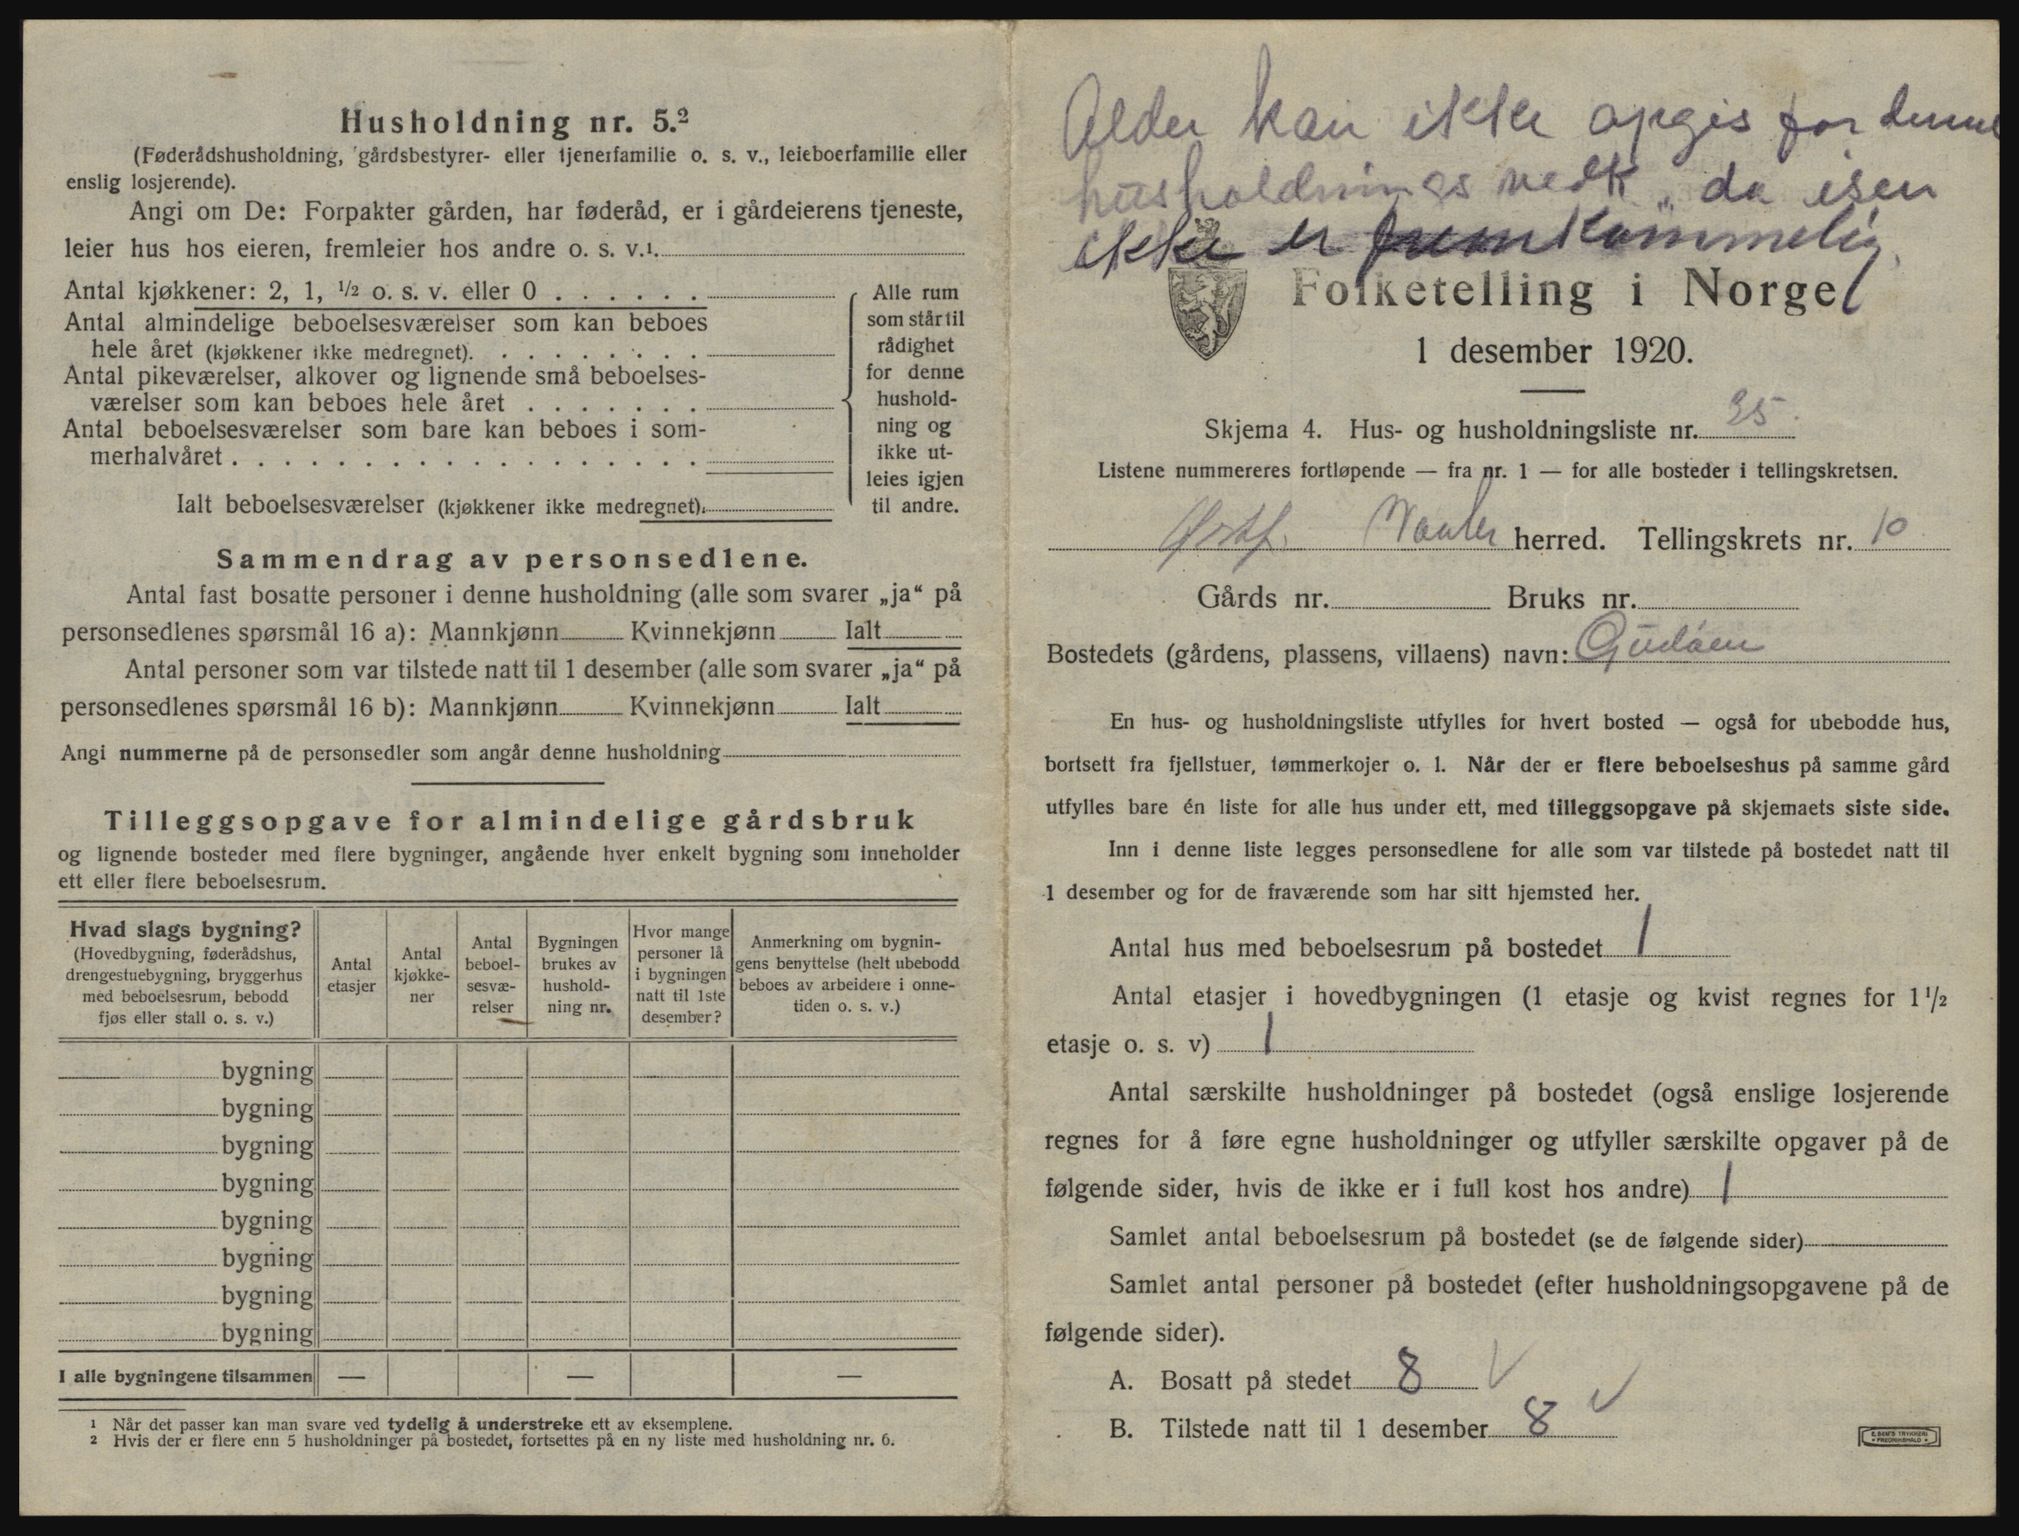 Husholdning nr. 5.²
(Føderådshusholdning, gårdsbestyrer- eller tjenerfamilie o. s. v., leieboerfamilie eller
enslig losjerende).
Angi om De: Forpakter gården, har føderåd, er i gårdeierens tjeneste,
leier hus hos eieren, fremleier hos andre o. s. v.¹.
Antal kjøkkener: 2, 1, ½ o. s. v. eller 0 . . . . . .
Antal almindelige beboelsesværelser som kan beboes
hele året (kjøkkener ikke medregnet). . . . . . . . .
Antal pikeværelser, alkover og lignende små beboelses-
værelser som kan beboes hele året . . . . . . .
Antal beboelsesværelser som bare kan beboes i som-
merhalvåret . . . . . . . . . . . . . . . . . .
Ialt beboelsesværelser (kjøkkener ikke medregnet).
Alle rum
som står til
rådighet
for denne
hushold-
ning og
ikke ut-
leies igjen
til andre.
Sammendrag av personsedlene.
Antal fast bosatte personer i denne husholdning (alle som svarer „ja“ på
personsedlenes spørsmål 16 a): Mannkjønn Kvinnekjønn Ialt
Antal personer som var tilstede natt til 1 desember (alle som svarer „ja“ på
personsedlenes spørsmål 16 b): Mannkjønn Kvinnekjønn Ialt
Angi nummerne på de personsedler som angår denne husholdning
Tilleggsopgave for almindelige gårdsbruk
og lignende bosteder med flere bygninger, angående hver enkelt bygning som inneholder
ett eller flere beboelsesrum.
Hvad slags bygning?
(Hovedbygning, føderådshus,
drengestuebygning, bryggerhus
med beboelsesrum, bebodd
fjøs eller stall o. s. v.)
Antal
etasjer
Antal
kjøkke-
ner
Antal
beboel-
sesvæ-
relser
Bygningen
brukes av
hushold-
ning nr.
Hvor mange
personer lå
i bygningen
natt til 1ste
desember?
Anmerkning om bygnin-
gens benyttelse (helt ubebodd
beboes av arbeidere i onne-
tiden o. s. v.)
bygning
bygning
bygning
bygning
bygning
bygning
bygning
bygning
I alle bygningene tilsammen — — —
¹ Når det passer kan man svare ved tydelig å understreke ett av eksemplene.
² Hvis der er flere enn 5 husholdninger på bostedet, fortsettes på en ny liste med husholdning nr. 6.
Alder kan ikke opgis for denne
husholdnings vedk. da isen
ikke er fremkommelig.
Folketelling i Norge
1 desember 1920.
Skjema 4. Hus- og husholdningsliste nr. 35.
Listene nummereres fortløpende — fra nr. 1 — for alle bosteder i tellingskretsen.
Østf. Vaaler herred. Tellingskrets nr. 10
Gårds nr. Bruks nr.
Bostedets (gårdens, plassens, villaens) navn: Gudøen
En hus- og husholdningsliste utfylles for hvert bosted — også for ubebodde hus,
bortsett fra fjellstuer, tømmerkojer o. l. Når der er flere beboelseshus på samme gård
utfylles bare én liste for alle hus under ett, med tilleggsopgave på skjemaets siste side.
Inn i denne liste legges personsedlene for alle som var tilstede på bostedet natt til
1 desember og for de fraværende som har sitt hjemsted her.
Antal hus med beboelsesrum på bostedet 1
Antal etasjer i hovedbygningen (1 etasje og kvist regnes for 1½
etasje o. s. v) 1
Antal særskilte husholdninger på bostedet (også enslige losjerende
regnes for å føre egne husholdninger og utfyller særskilte opgaver på de
følgende sider, hvis de ikke er i full kost hos andre) 1
Samlet antal beboelsesrum på bostedet (se de følgende sider)
Samlet antal personer på bostedet (efter husholdningsopgavene på de
følgende sider).
A. Bosatt på stedet 8 √
B. Tilstede natt til 1 desember 8 √
E. SEM'S TRYKKERI
FREDRIKSHALD